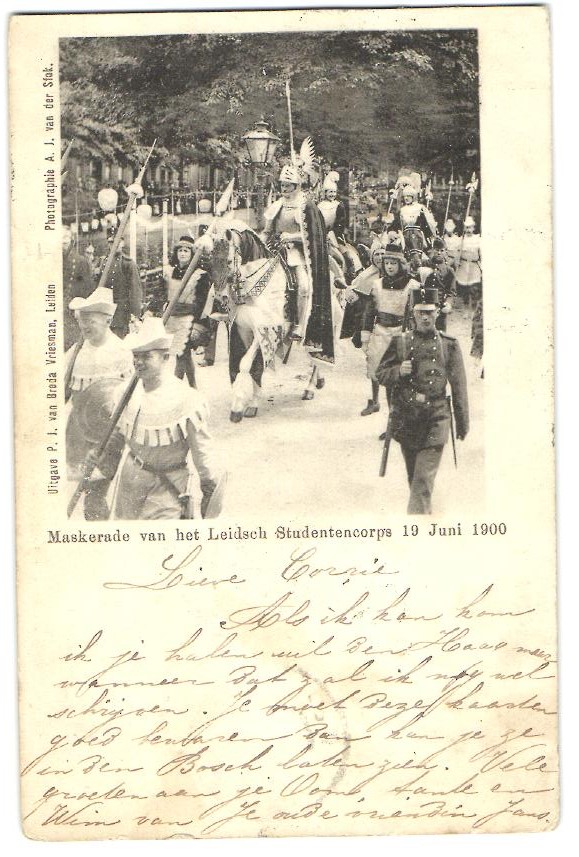 Photographie A. J. van der Stok.
Uitgave P. J. van Breda Vriesman, Leiden
Maskerade van het Leidsch Studentencorps 19 Juni 1900
Lieve Corrie
Als ik kan kom
ik je halen uit den Haag maar
wanneer dat zal ik nog wel
schrijven. Je moet deze kaarten
goed bewaren dan kan je ze
in den Bosch laten zien. Vele
groeten aan je Oom, tante en
Wim van Je oude vriendin Jans.